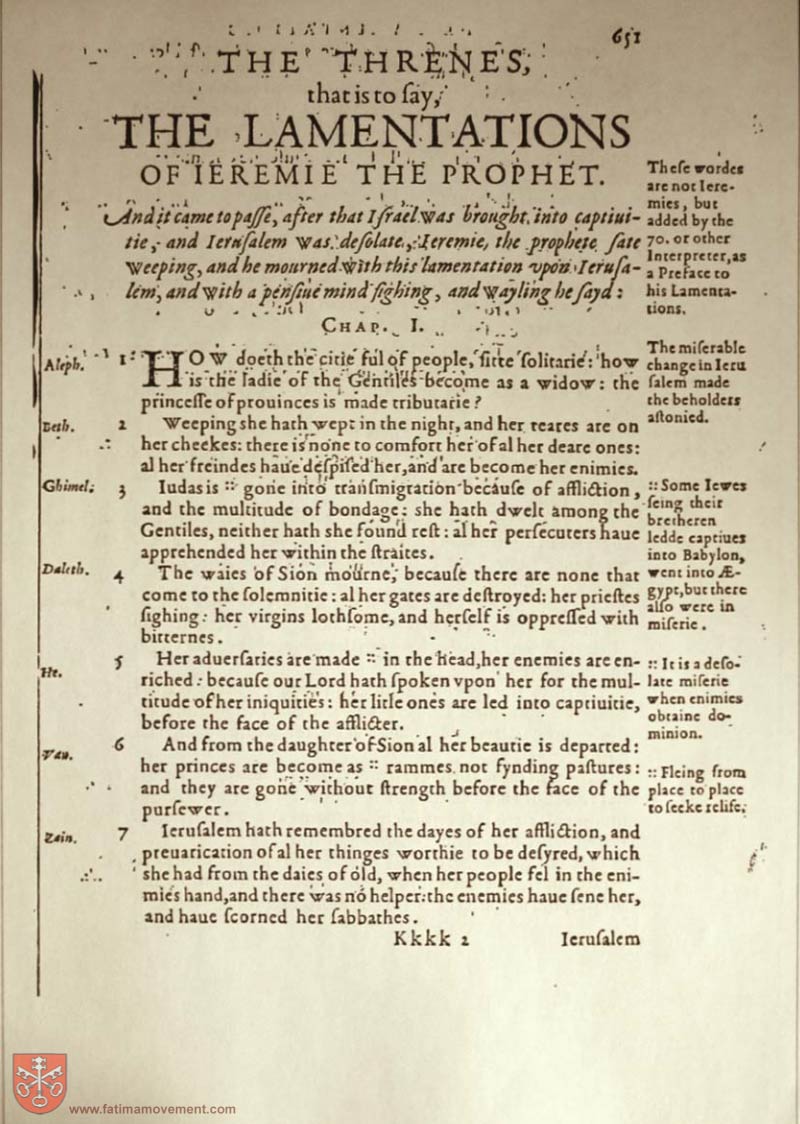 651
THE THRENES,
that is to ſay,
THE LAMENTATIONS
OF IEREMIE THE PROPHET.
And it came to paſſe, after that Iſrael was brought into captiui-
tie, and Ieruſalem was deſolate, Ieremie, the prophete ſate
weeping, and he mourned with this lamentation vpon Ieruſa-
lem, and with a penſiue mind ſighing, and wayling he ſayd:
Theſe wordes
are not Iere-
mies, but
added by the
70. or other
Interpreter, as
a Preface to
his Lamenta-
tions.
CHAP. I.
Aleph. 1 HOW doeth the citie ful of people, ſitte ſolitarie: how
is the ladie of the Gentiles become as a widow: the
princeſſe of prouinces is made tributarie?
The miſerable
change in Ieru
ſalem made
the beholders
aſtonied.
Beth. 2 Weeping she hath wept in the night, and her teares are on
her cheekes: there is none to comfort her of al her deare ones:
al her freindes haue deſpiſed her, and are become her enimies.
Ghimel; 3 Iudas is :: gone into tranſmigration becauſe of affliction,
and the multitude of bondage: she hath dwelt among the
Gentiles, neither hath she found reſt: al her perſecuters haue
apprehended her within the ſtraites.
:: Some Iewes
ſeing their
bretheren
ledde captiues
into Babylon,
went into Æ-
gypt, but there
alſo were in
miſerie.
Daleth. 4 The waies of Sion mourne, becauſe there are none that
come to the ſolemnitie: al her gates are deſtroyed: her prieſtes
ſighing: her virgins lothſome, and herſelf is oppreſſed with
bitternes.
He. 5 Her aduerſaries are made :: in the head, her enemies are en-
riched: becauſe our Lord hath ſpoken vpon her for the mul-
titude of her iniquities: her litle ones are led into captiuitie,
before the face of the afflicter.
:: It is a deſo-
late miſerie
when enimies
obtaine do-
minion.
Vau. 6 And from the daughter of Sion al her beautie is departed:
her princes are become as :: rammes not fynding paſtures:
and they are gone without ſtrength before the face of the
purſewer.
:: Fleing from
place to place
to ſeeke relife.
Zain. 7 Ieruſalem hath remembred the dayes of her affliction, and
preuarication of al her thinges worthie to be deſyred, which
she had from the daies of old, when her people fel in the eni-
mies hand, and there was no helper: the enemies haue ſene her,
and haue ſcorned her ſabbathes.
Kkkk 2 Ieruſalem
www.fatimamovement.com